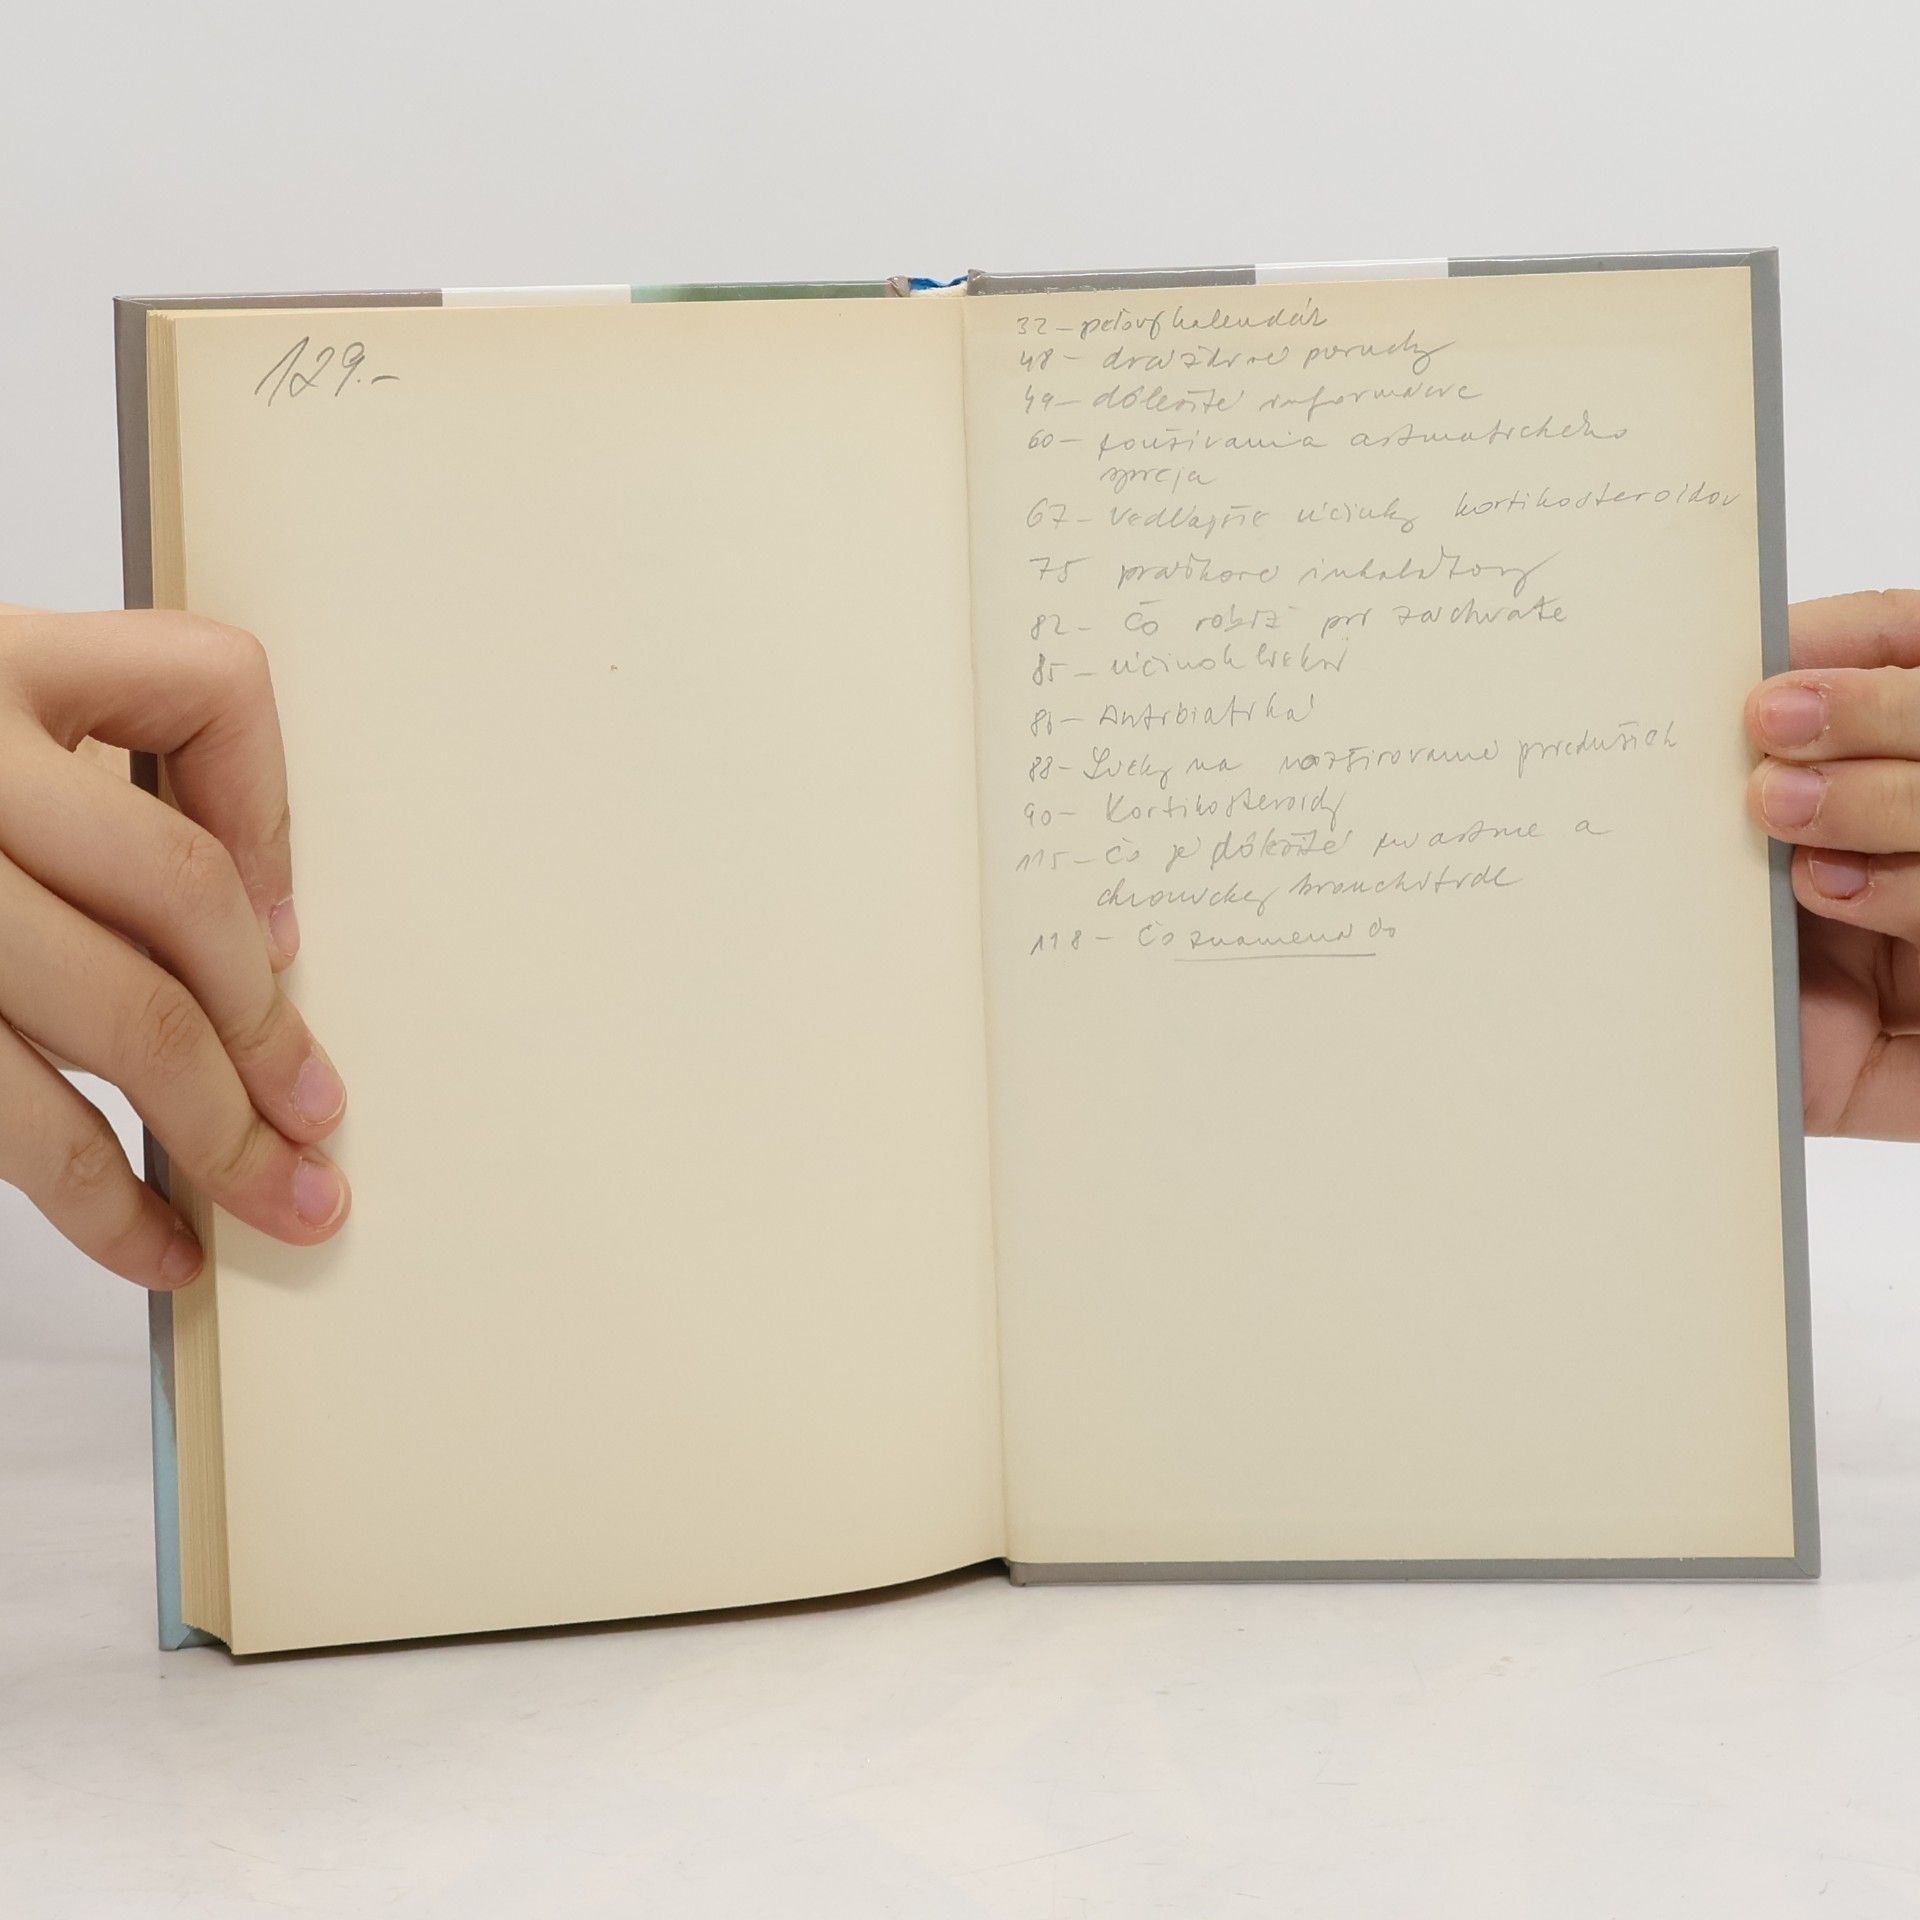 129.-
32 - peľový kalendár
48 - dráždivé
49 - dôležité informácie
60 - používania astmatického
spreja
67 - Vedľajšie účinky kortikosteroidov
75 práškové inhalátory
82 - Čo robiť pri záchvate
85 - účinok liekov
86 - Antibiotiká
88 - Lieky na rozširovanie priedušiek
90 - Kortikosteroidy
115 - čo je dôležité pri astme a
chronickej bronchitíde
118 - Čo znamená čo